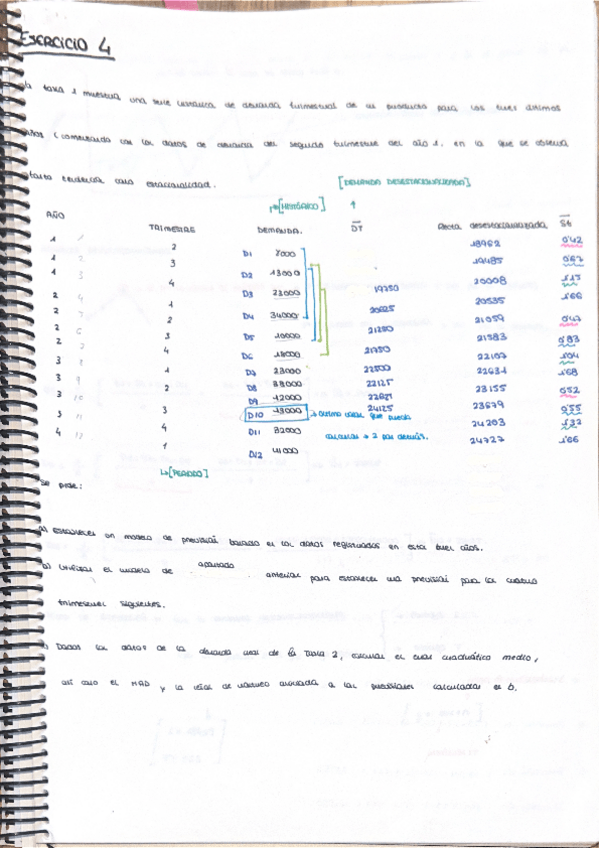 EJERCICIO 4
la tabla 1 muestra una serie histórica de demanda trimestral de un producto para los tres últimos
años (comenzando con los datos de demanda del segundo trimestre del año 1, en la que se observa
tanto tendencia como estacionalidad.
[DEMANDA DESESTACIONALIZADA]
[HISTÓRICO]
AÑO TRIMESTRE DEMANDA. DT Recta desestacionalizada St
1 1 2 D1 8000 18962 0'42
1 2 3 D2 13000 19485 0'67
1 3 4 D3 23000 19750 20008 1'15
2 4 1 D4 34000 20625 20535 1'66
2 5 2 D5 10000 21250 21059 0'47
2 6 3 D6 18000 21750 21583 0'83
2 7 4 D7 23000 22500 22107 1'04
3 8 1 D8 38000 22125 22631 1'68
3 9 2 D9 12000 22625 23155 0'52
3 10 3 D10 13000 24125 23679 0'55
→ último valor que puedo
3 11 4 D11 32000 24203 1'32
calcular → 2 por detrás.
4 12 1 D12 41000 24727 1'66
↳[PERIODO]
Se pide:
a) Establecer un modelo de previsión basado en los datos registrados en estos tres años.
b) Utilizar el modelo de apartado anterior para establecer una previsión para los cuatro
trimestres siguientes.
c) Dados los datos de la demanda real de la Tabla 2, calcular el error cuadrático medio,
así como el MAD y la señal de rastreo asociada a las previsiones calculadas en b.